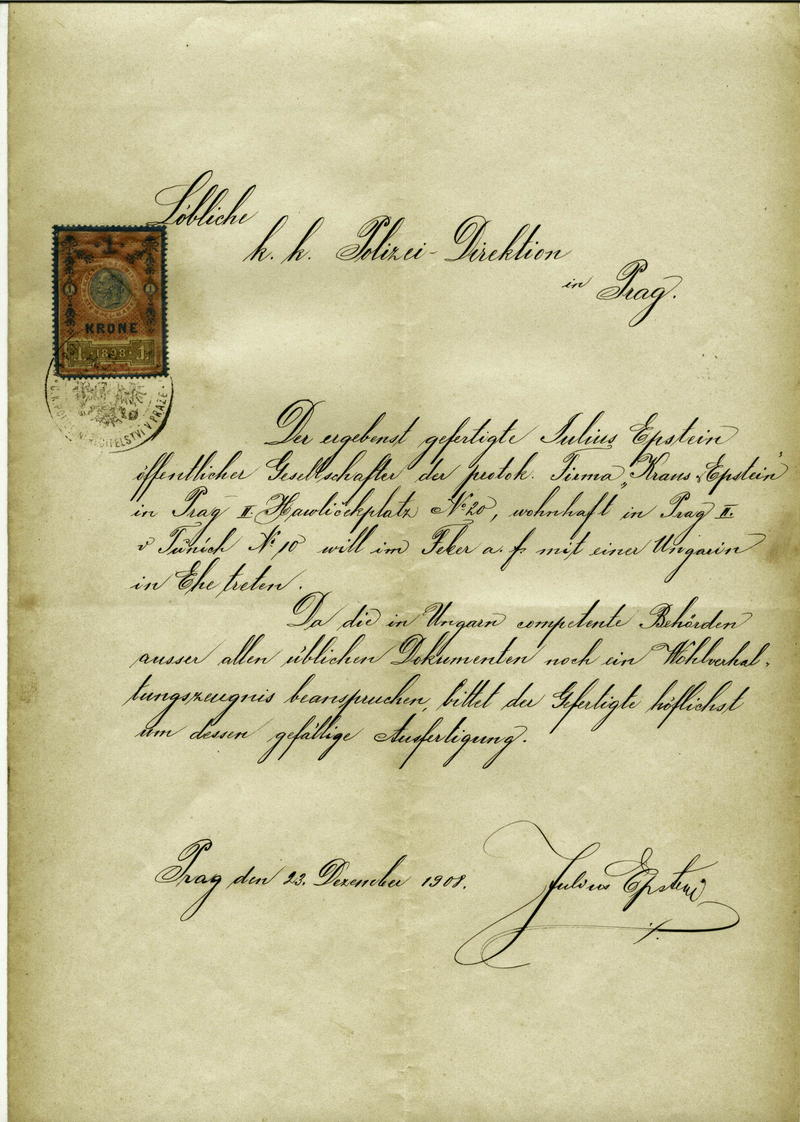 Löbliche
k. k. Polizei-Direktion
in Prag.
1
1 1
KRONE
1 1898 1
Der ergebenst gefertigte Julius Epstein
öffentlicher Gesellschafter der protok. Firma „Kraus & Epstein"
in Prag II. Hawličekplatz No 20, wohnhaft in Prag II.
v Tůních No 10 will im Feber a. f. mit einer Ungarin
in Ehe treten.
Da die in Ungarn competente Behörden
ausser allen üblichen Dokumenten noch ein Wohlverhal-
tungszeugnis beanspruchen, bittet der Gefertigte höflichst
um dessen gefällige Ausfertigung.
Prag den 23. Dezember 1908.
Julius Epstein